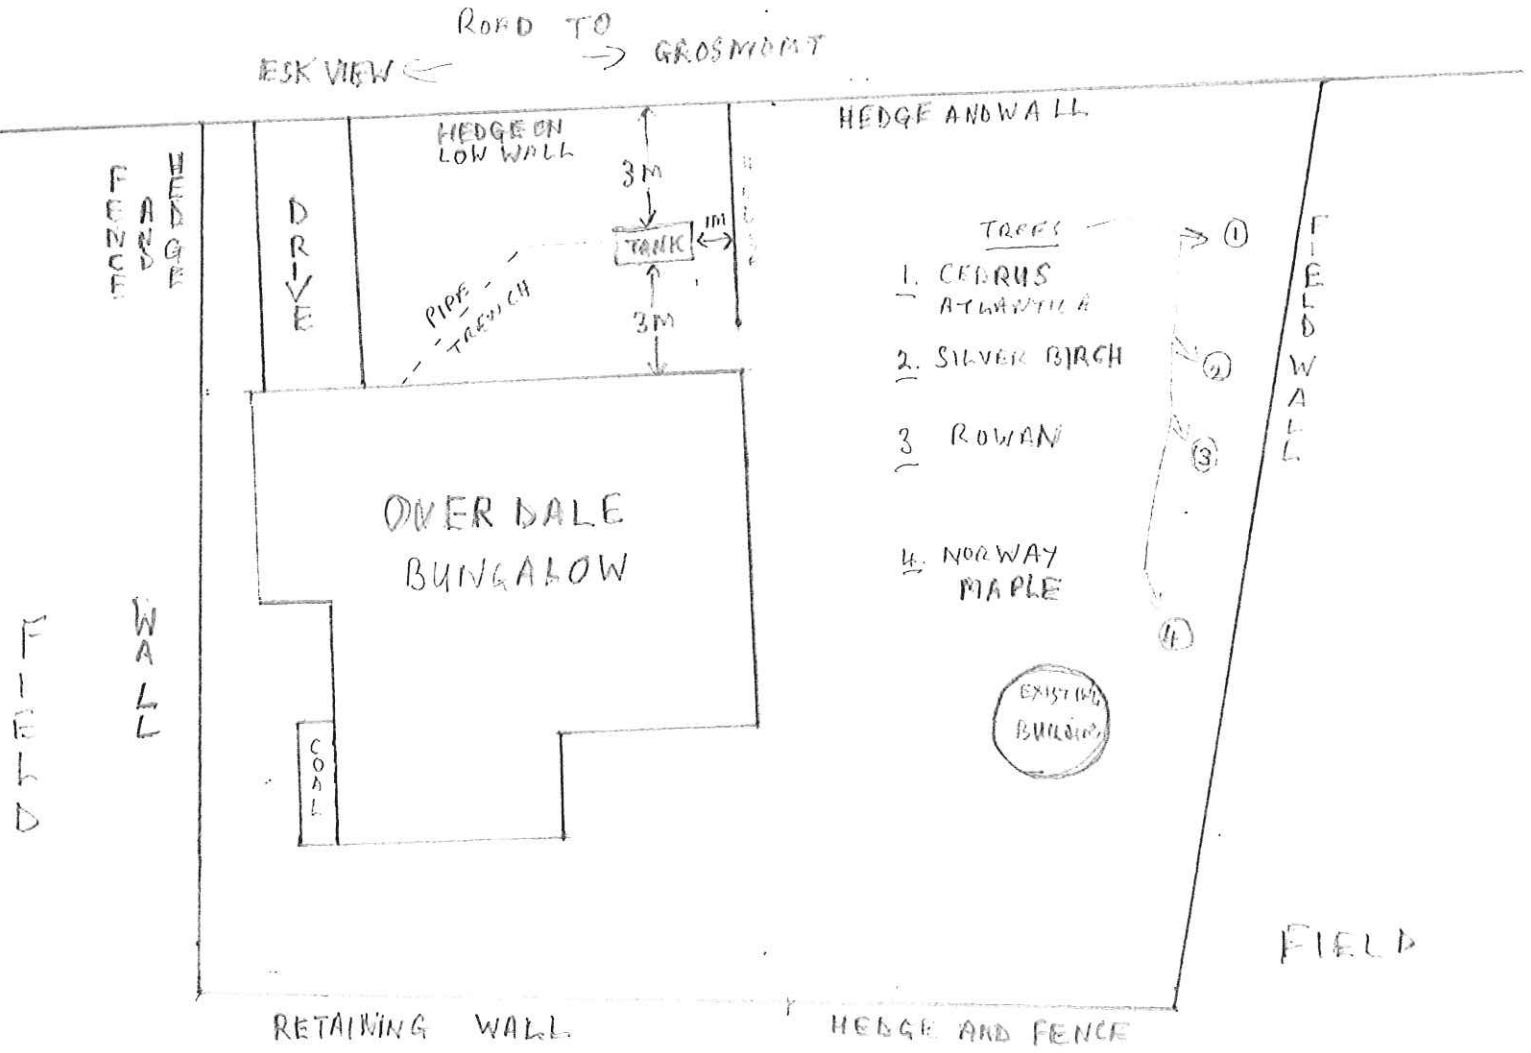 ROAD TO
ESK VIEW ← → GROSMONT
HEDGE AND WALL
HEDGE ON
LOW WALL
HEDGE
AND
FENCE
DRIVE
3M
TANK
1M
3M
PIPE
TRENCH
TREES
1. CEDRUS
ATLANTICA
2. SILVER BIRCH
3 ROWAN
4. NORWAY
MAPLE
1
2
3
4
FIELD WALL
OVERDALE
BUNGALOW
EXISTING
BUILDING
COAL
WALL
FIELD
FIELD
RETAINING WALL
HEDGE AND FENCE